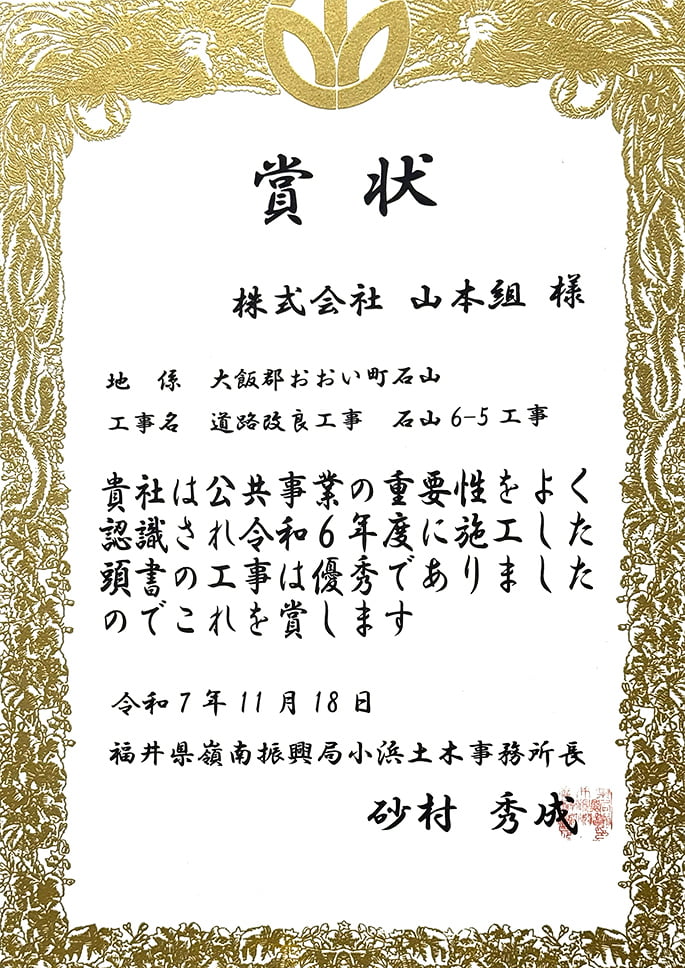 賞状
株式会社 山本組 様
地 係 大飯郡おおい町石山
工事名 道路改良工事 石山6-5工事
貴社は公共事業の重要性をよく
認識され令和6年度に施工した
頭書の工事は優秀でありました
のでこれを賞します
令和7年11月18日
福井県嶺南振興局小浜土木事務所長
砂村 秀成